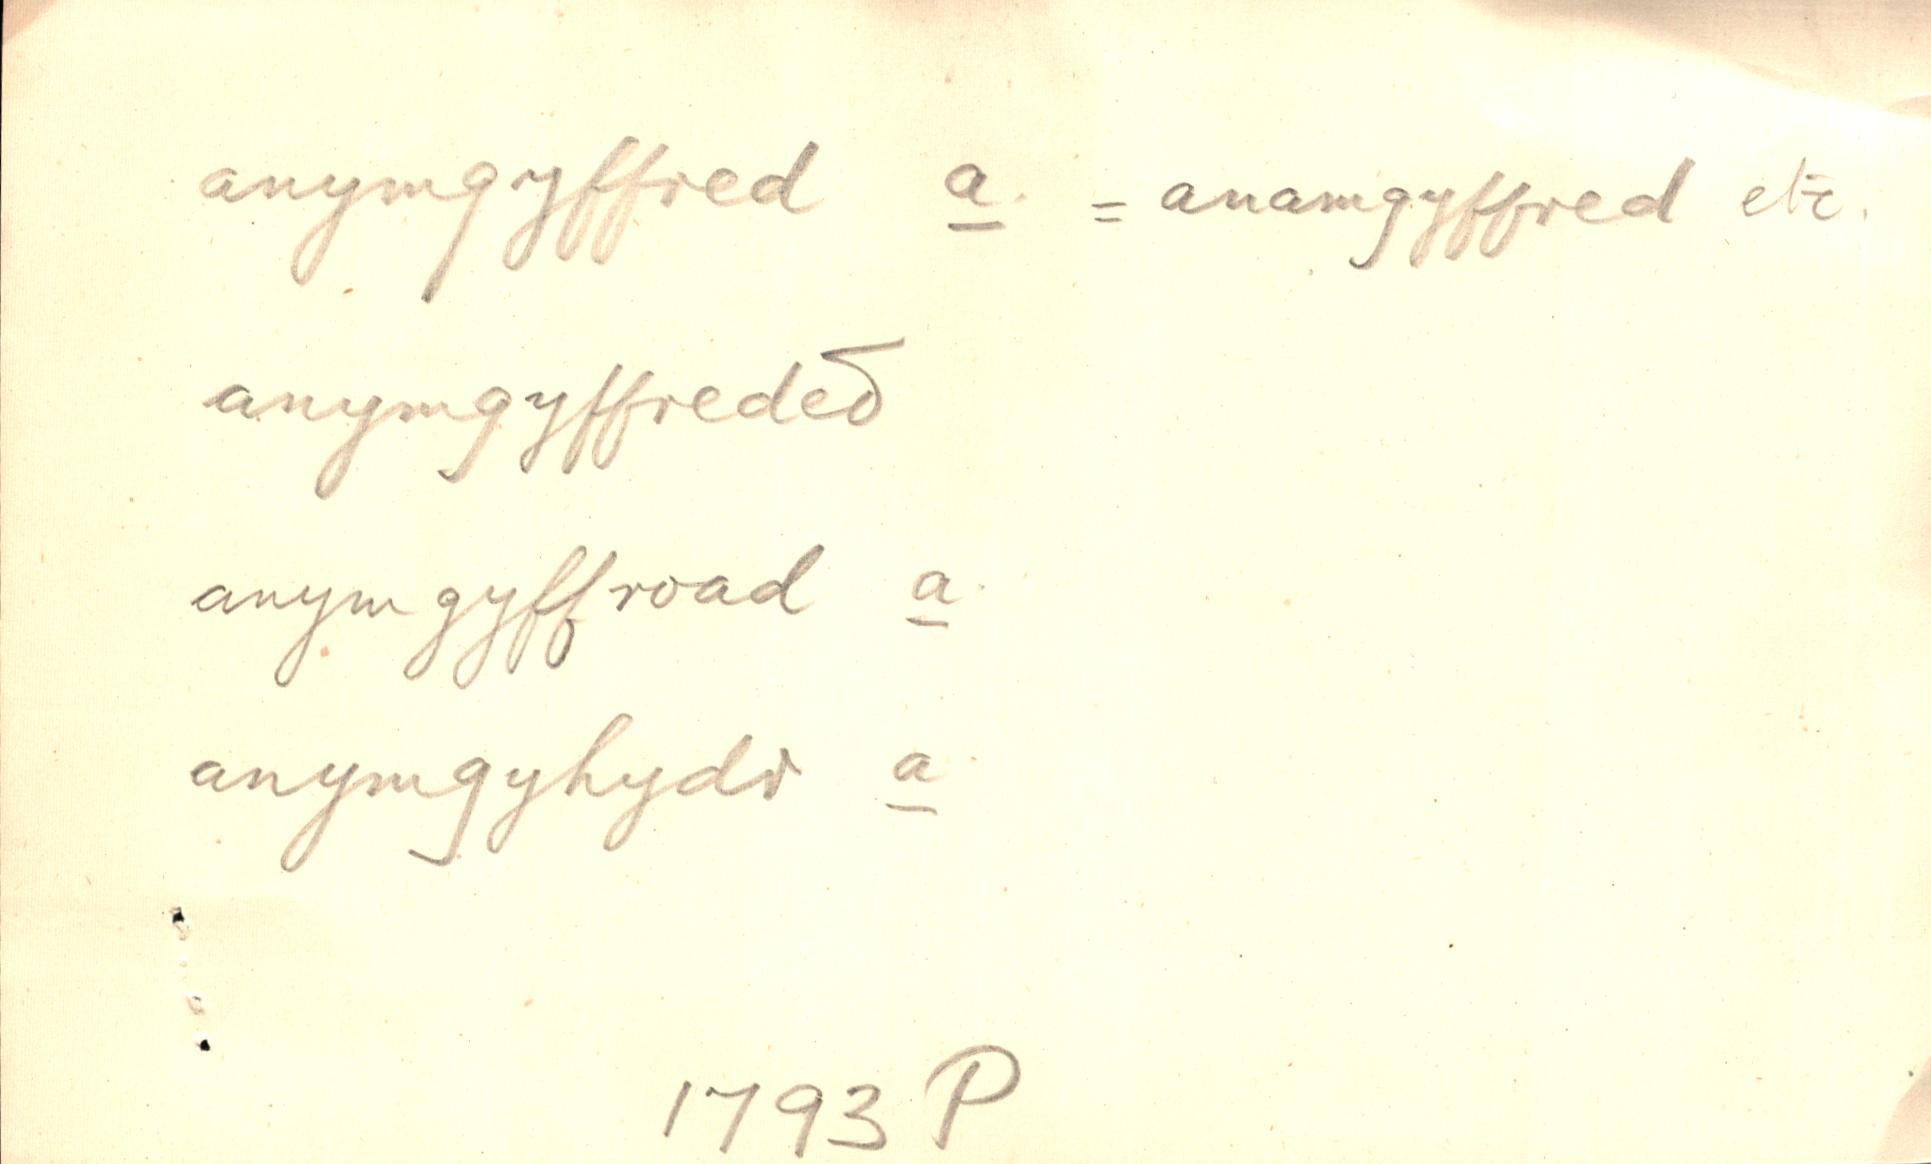 anymgyffred a. = anamgyffred etc.
anymgyffredeδ
anymgyffroad a.
anymgyhydr a.
1793 P